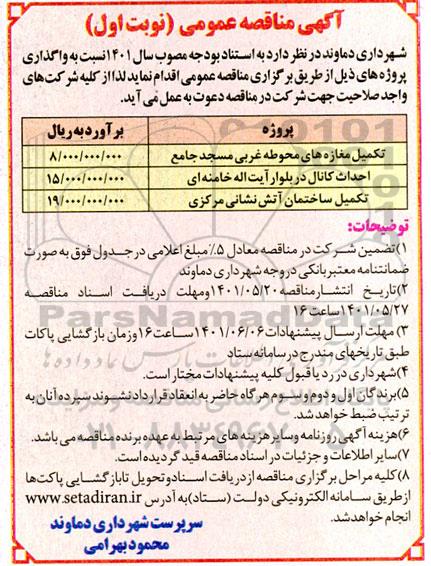 آگهی مناقصه عمومی (نوبت اول)
شهرداری دماوند در نظر دارد به استناد بودجه مصوب سال ۱۴۰۱ نسبت به واگذاری
پروژه های ذیل از طریق برگزاری مناقصه عمومی اقدام نماید لذا از کلیه شرکت های
واجد صلاحیت جهت شرکت در مناقصه دعوت به عمل می آید.
پروژه برآورد به ریال
تکمیل مغازه های محوطه غربی مسجد جامع ۸/۰۰۰/۰۰۰/۰۰۰
احداث کانال در بلوار آیت اله خامنه ای ۱۵/۰۰۰/۰۰۰/۰۰۰
تکمیل ساختمان آتش نشانی مرکزی ۱۹/۰۰۰/۰۰۰/۰۰۰
توضیحات:
۱) تضمین شرکت در مناقصه معادل ۵٪ مبلغ اعلامی در جدول فوق به صورت
ضمانتنامه معتبر بانکی در وجه شهرداری دماوند
۲) تاریخ انتشار مناقصه ۱۴۰۱/۰۵/۲۰ ومهلت دریافت اسناد مناقصه
۱۴۰۱/۰۵/۲۷ ساعت ۱۶
۳) مهلت ارسال پیشنهادات ۱۴۰۱/۰۶/۰۶ ساعت ۱۶ وزمان بازگشایی پاکات
طبق تاریخهای مندرج در سامانه ستاد
۴) شهرداری در رد یا قبول کلیه پیشنهادات مختار است.
۵) برندگان اول و دوم و سوم هرگاه حاضر به انعقاد قرارداد نشوند سپرده آنان به
ترتیب ضبط خواهد شد.
۶) هزینه آگهی روزنامه و سایر هزینه های مرتبط به عهده برنده مناقصه می باشد.
۷) سایر اطلاعات و جزئیات در اسناد مناقصه قید گردیده است.
۸) کلیه مراحل برگزاری مناقصه از دریافت اسناد و تحویل تا بازگشایی پاکت‌ها
از طریق سامانه الکترونیکی دولت (ستاد) به آدرس www.setadiran.ir
انجام خواهد شد.
سرپرست شهرداری دماوند
محمود بهرامی